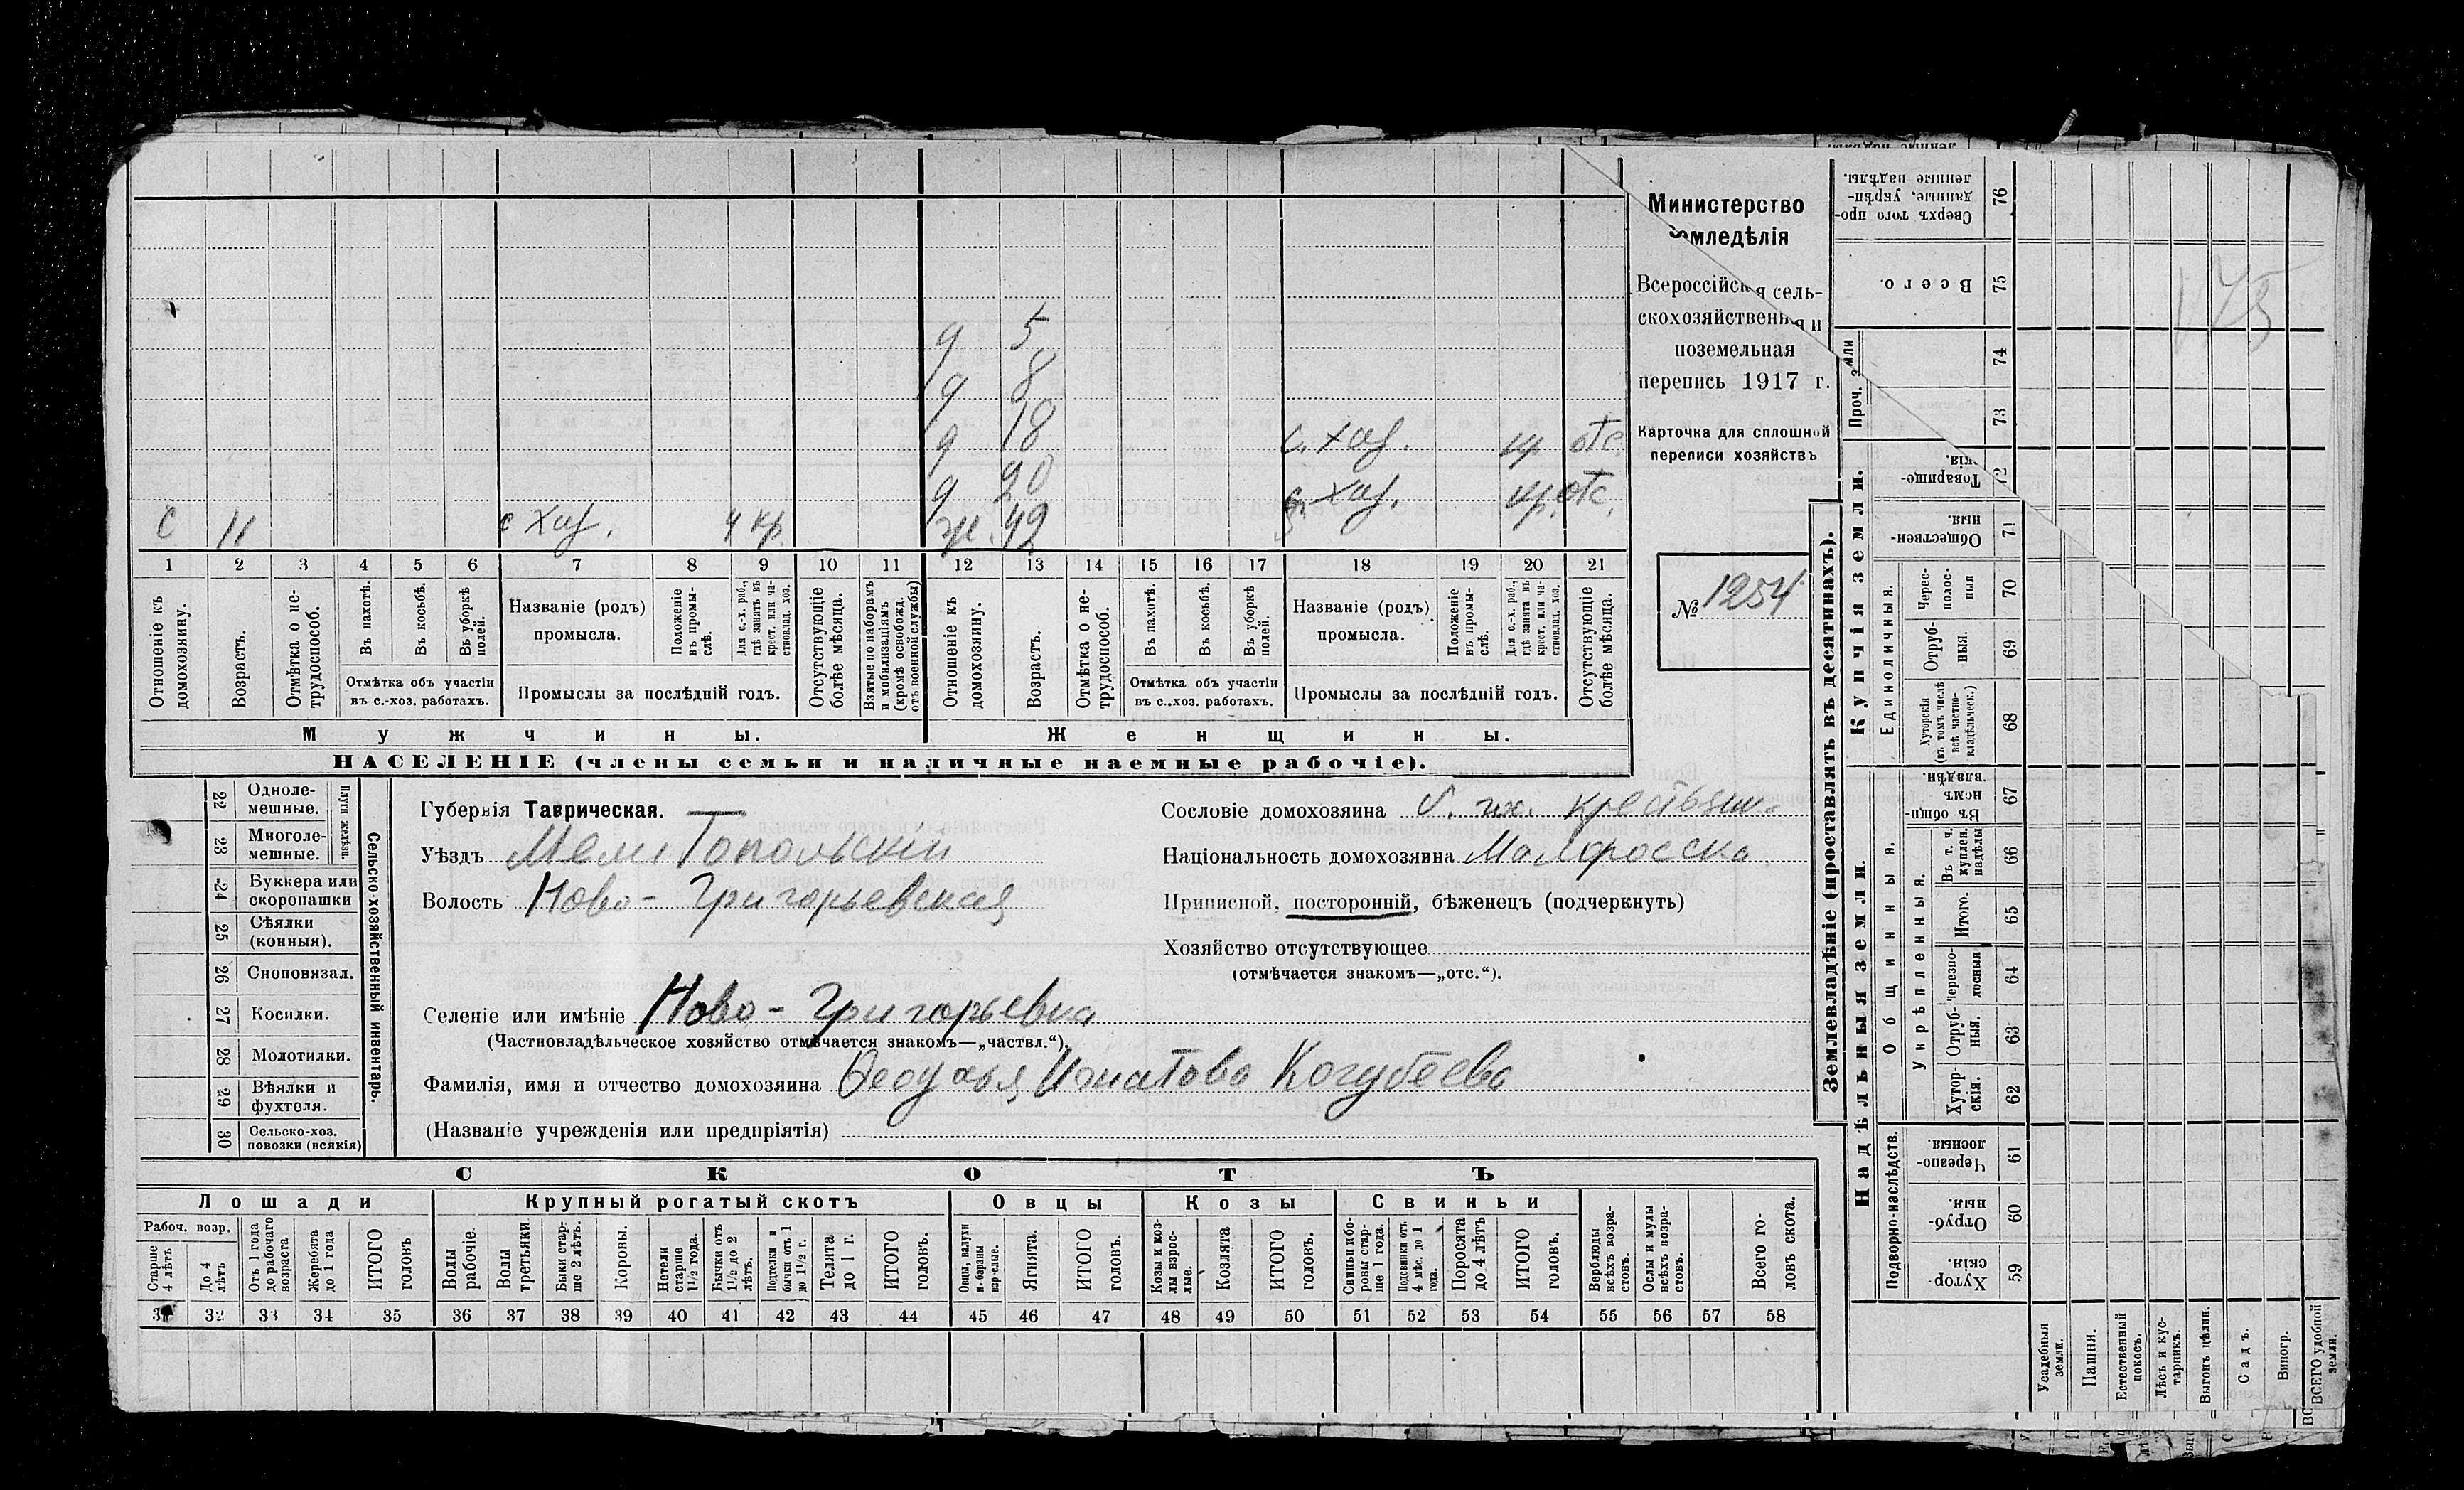 5
8
18 с. хоз. кр отс.
20 с. хоз. кр. отс.
с 11 с хоз. ч кр. ж. 42
1 2 3 4 5 6 7 8 9 10 11 12 13 14 15 16 17 18 19 20 21
Отношеніе къ домохозяину.
Возрастъ.
Отмѣтка о нетрудоспособ.
Въ пахотѣ.
Въ косьбѣ.
Въ уборкѣ полей.
Отмѣтка объ участіи
въ с.-хоз. работахъ.
Названіе (родъ)
промысла.
Положеніе въ промыслѣ.
Для с.-х. раб., гдѣ занятъ въ крест. или частновлад. хоз.
Промыслы за послѣдній годъ.
Отсутствующіе болѣе мѣсяца.
Взятые по наборамъ и мобилизаціямъ (кромѣ освобожд. отъ военной службы)
Отношеніе къ домохозяину.
Возрастъ.
Отмѣтка о нетрудоспособ.
Въ пахотѣ.
Въ косьбѣ.
Въ уборкѣ полей.
Отмѣтка объ участіи
въ с.-хоз. работахъ.
Названіе (родъ)
промысла.
Положеніе въ промыслѣ.
Для с.-х. раб., гдѣ занята въ крест. или частновлад. хоз.
Промыслы за послѣдній годъ.
Отсутствующіе болѣе мѣсяца.
Мужчины. Женщины.
НАСЕЛЕНІЕ (члены семьи и наличные наемные рабочіе).
Министерство
Земледѣлія
Всероссійская сель-
скохозяйственная и
поземельная
перепись 1917 г.
Карточка для сплошной
переписи хозяйствъ
№ 1254
22 Одноле-
мешные.
23 Многоле-
мешные.
Плуги желѣзн.
24 Буккера или
скоропашки
25 Сѣялки
(конныя).
26 Сноповязал.
27 Косилки.
28 Молотилки.
29 Вѣялки и
фухтеля.
30 Сельско-хоз.
повозки (всякія)
Сельско-хозяйственный инвентарь.
Губернія Таврическая.
Уѣздъ Мелитопольскій
Волость Ново-Григорьевская
Сословіе домохозяина крестьян.
Національность домохозяина Малоросска
Приписной, посторонній, бѣженецъ (подчеркнуть)
Хозяйство отсутствующее
(отмѣчается знакомъ—„отс.“).
Селеніе или имѣніе Ново-Григорьевка
(Частновладѣльческое хозяйство отмѣчается знакомъ—„частвл.“).
Фамилія, имя и отчество домохозяина Игнатова Когубеева
(Названіе учрежденія или предпріятія)
СКОТЪ
Лошади Крупный рогатый скотъ Овцы Козы Свиньи
Рабоч. возр.
Старше 4 лѣтъ
До 4 лѣтъ
Отъ 1 года до рабочаго возраста
Жеребята до 1 года
ИТОГО головъ
Волы рабочіе.
Волы третьяки.
Быки старше 2 лѣтъ.
Коровы.
Нетели старше 1 1/2 года.
Бычки отъ 1 1/2 до 2 лѣтъ.
Подтелки и бычки отъ 1 до 1 1/2 г.
Телята до 1 г.
ИТОГО головъ.
Овцы, валухи и бараны взрослые.
Ягнята.
ИТОГО головъ.
Козы и козлы взрослые.
Козлята
ИТОГО головъ.
Свиньи и боровы старше 1 года.
Подсвинки отъ 4 мѣс. до 1 года.
Поросята до 4 лѣтъ
ИТОГО головъ.
Верблюды всѣхъ возрастовъ.
Ослы и мулы всѣхъ возрастовъ.
Всего головъ скота.
31 32 33 34 35 36 37 38 39 40 41 42 43 44 45 46 47 48 49 50 51 52 53 54 55 56 57 58
Землевладѣніе (проставлять въ десятинахъ).
Купчія земли.
Надѣльныя земли.
Проч. земли
Единоличныя.
Общинныя.
Укрѣпленныя.
Подворно-наслѣдств.
Сверхъ того проданные, укрѣпленные надѣлы. 76
Всего. 75
74
73
Товарищескія. 72
Общественныя. 71
Черес-
полос-
ныя 70
Отруб-
ныя. 69
Хуторскія (въ томъ числѣ всѣ частновладѣльческ.) 68
Въ общинномъ владѣн. 67
Въ т. ч. куплен. надѣлы 66
Итого. 65
Черезполосныя 64
Отруб-
ныя. 63
Хутор-
скія. 62
Черезполосныя. 61
Отруб-
ныя. 60
Хутор-
скія. 59
Усадебныя земли.
Пашня.
Естественный покосъ.
Лѣсъ и кустарникъ.
Выгонъ цѣлин.
Садъ.
Виногр.
ВСЕГО удобной земли.
175